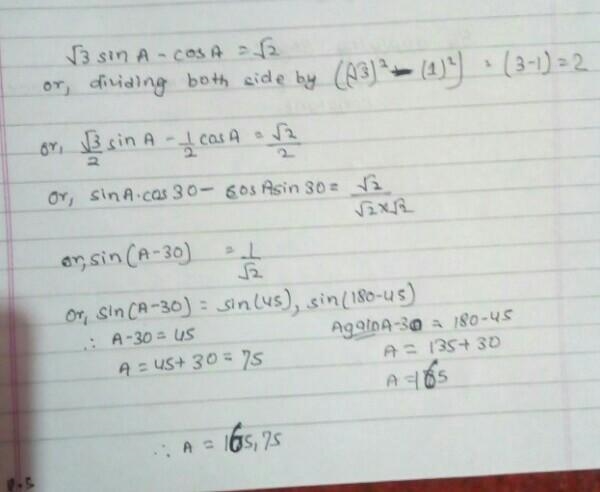 √3 sin A - cosA = √2
or, dividing both side by ((√3)² - (1)²) = (3-1) = 2
or, √3/2 sin A - 1/2 cosA = √2/2
Or, sinA.cos 30 - cosAsin 30 = √2/√2×√2
or, sin(A-30) = 1/√2
Or, sin(A-30) = sin(45), sin(180-45)
∴ A-30 = 45
A = 45+30 = 75
Again A-30 = 180-45
A = 135+30
A=165
∴ A = 165, 75